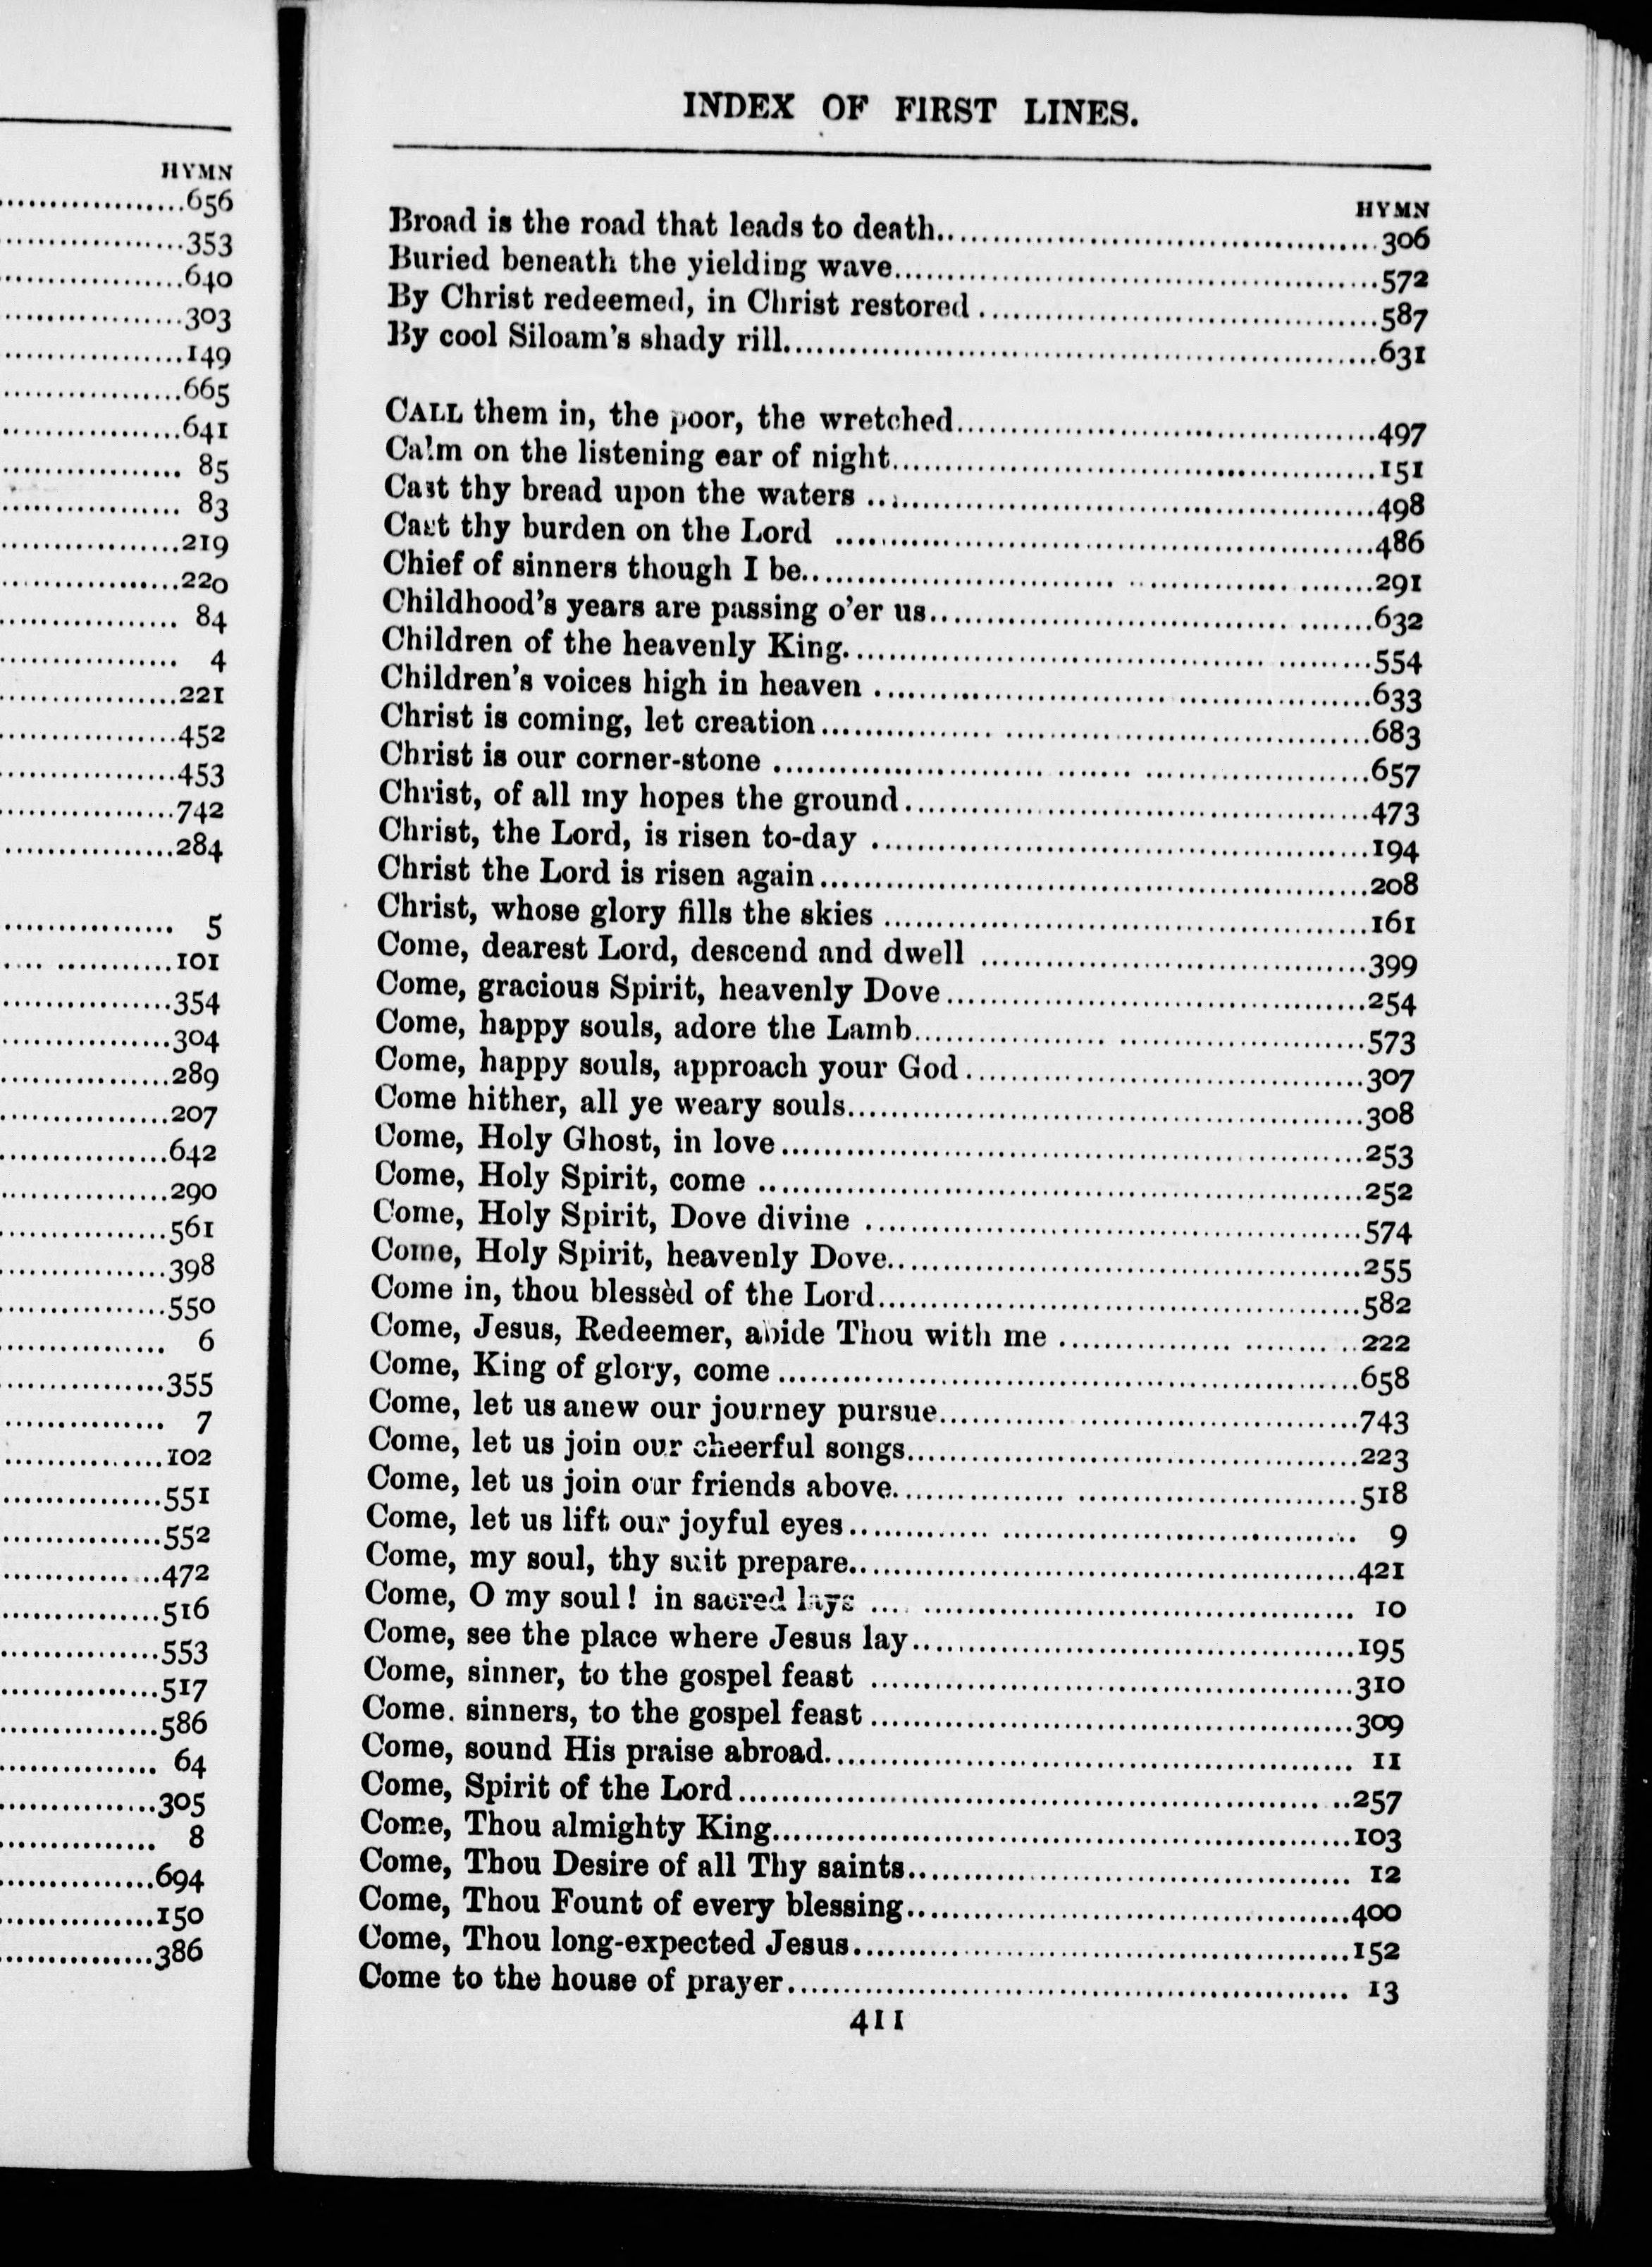 HYMN
..................656
..................353
..................640
..................303
..................149
..................665
..................641
.................. 85
.................. 83
..................219
..................220
.................. 84
.................. 4
..................221
..................452
..................453
..................742
..................284
................ 5
................101
................354
................304
................289
................207
................642
................290
................561
................398
................550
................ 6
................355
................ 7
................102
................551
................552
................472
................516
................553
................517
................586
................ 64
................305
................ 8
................694
................150
................386
INDEX OF FIRST LINES.
HYMN
Broad is the road that leads to death........................306
Buried beneath the yielding wave........................572
By Christ redeemed, in Christ restored ........................587
By cool Siloam's shady rill........................631
CALL them in, the poor, the wretched........................497
Calm on the listening ear of night........................151
Cast thy bread upon the waters ........................498
Cast thy burden on the Lord ........................486
Chief of sinners though I be........................291
Childhood's years are passing o'er us........................632
Children of the heavenly King........................554
Children's voices high in heaven ........................633
Christ is coming, let creation........................683
Christ is our corner-stone ........................657
Christ, of all my hopes the ground........................473
Christ, the Lord, is risen to-day ........................194
Christ the Lord is risen again........................208
Christ, whose glory fills the skies ........................161
Come, dearest Lord, descend and dwell ........................399
Come, gracious Spirit, heavenly Dove........................254
Come, happy souls, adore the Lamb........................573
Come, happy souls, approach your God........................307
Come hither, all ye weary souls........................308
Come, Holy Ghost, in love........................253
Come, Holy Spirit, come ........................252
Come, Holy Spirit, Dove divine ........................574
Come, Holy Spirit, heavenly Dove........................255
Come in, thou blessèd of the Lord........................582
Come, Jesus, Redeemer, abide Thou with me ........................222
Come, King of glory, come ........................658
Come, let us anew our journey pursue........................743
Come, let us join our cheerful songs........................223
Come, let us join our friends above........................518
Come, let us lift our joyful eyes........................ 9
Come, my soul, thy suit prepare........................421
Come, O my soul! in sacred lays ........................ 10
Come, see the place where Jesus lay........................195
Come, sinner, to the gospel feast ........................310
Come. sinners, to the gospel feast ........................309
Come, sound His praise abroad........................ 11
Come, Spirit of the Lord........................257
Come, Thou almighty King........................103
Come, Thou Desire of all Thy saints........................ 12
Come, Thou Fount of every blessing........................400
Come, Thou long-expected Jesus........................152
Come to the house of prayer........................ 13
411